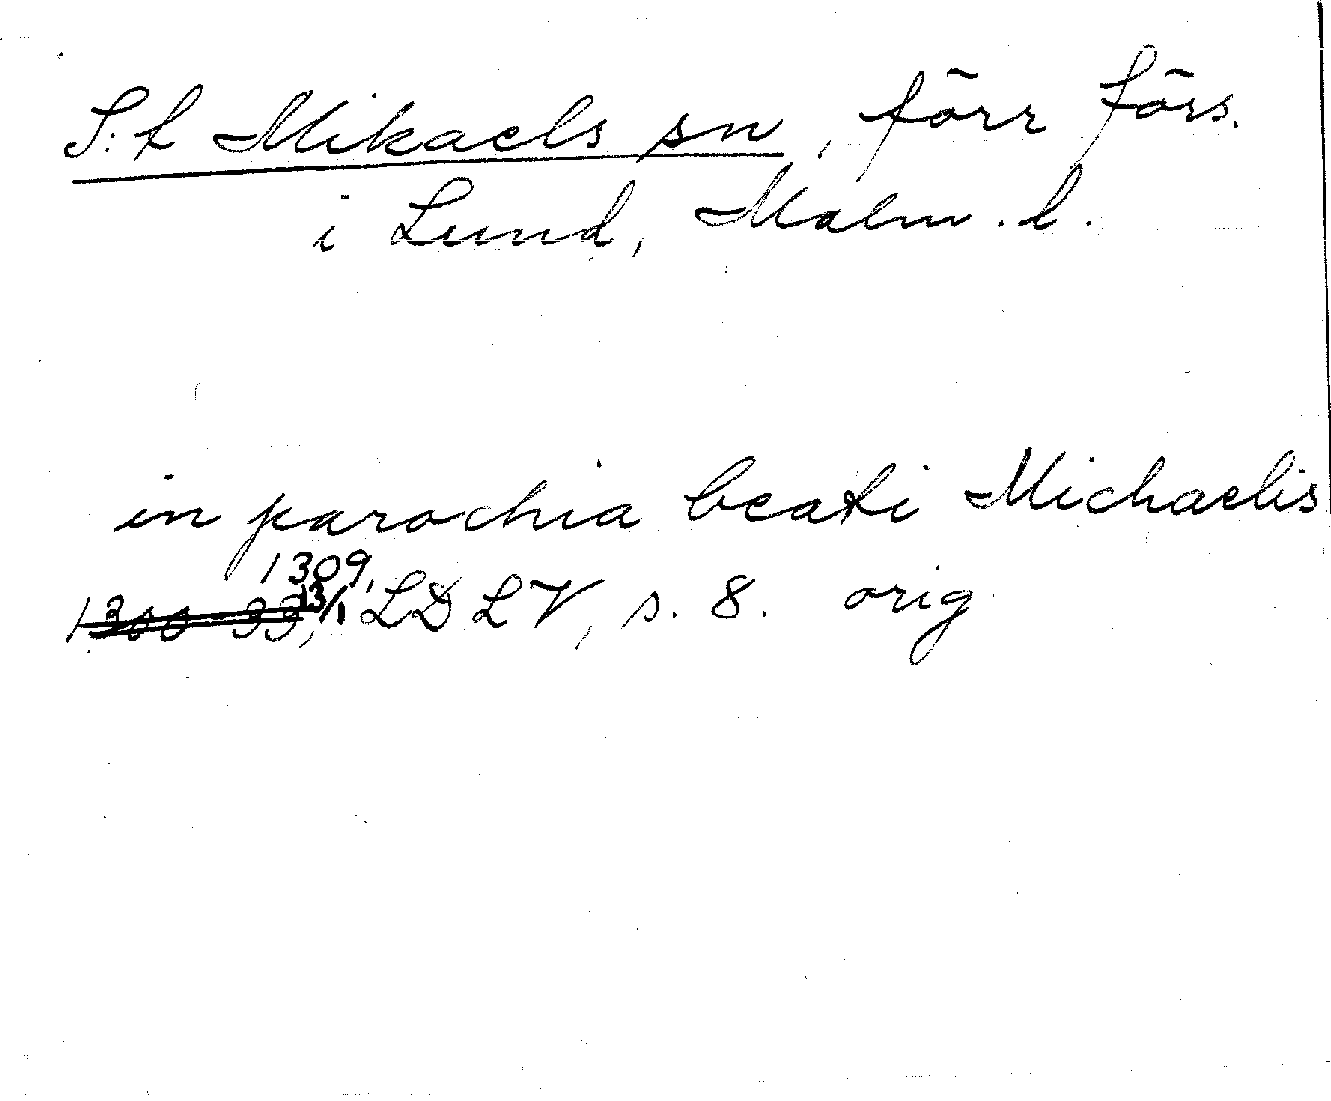 S:t Mikaels sn, förr förs.
i Lund, Malm. l.
in parochia beati Michaelis
1309,
13/1 LD LV, s. 8. orig